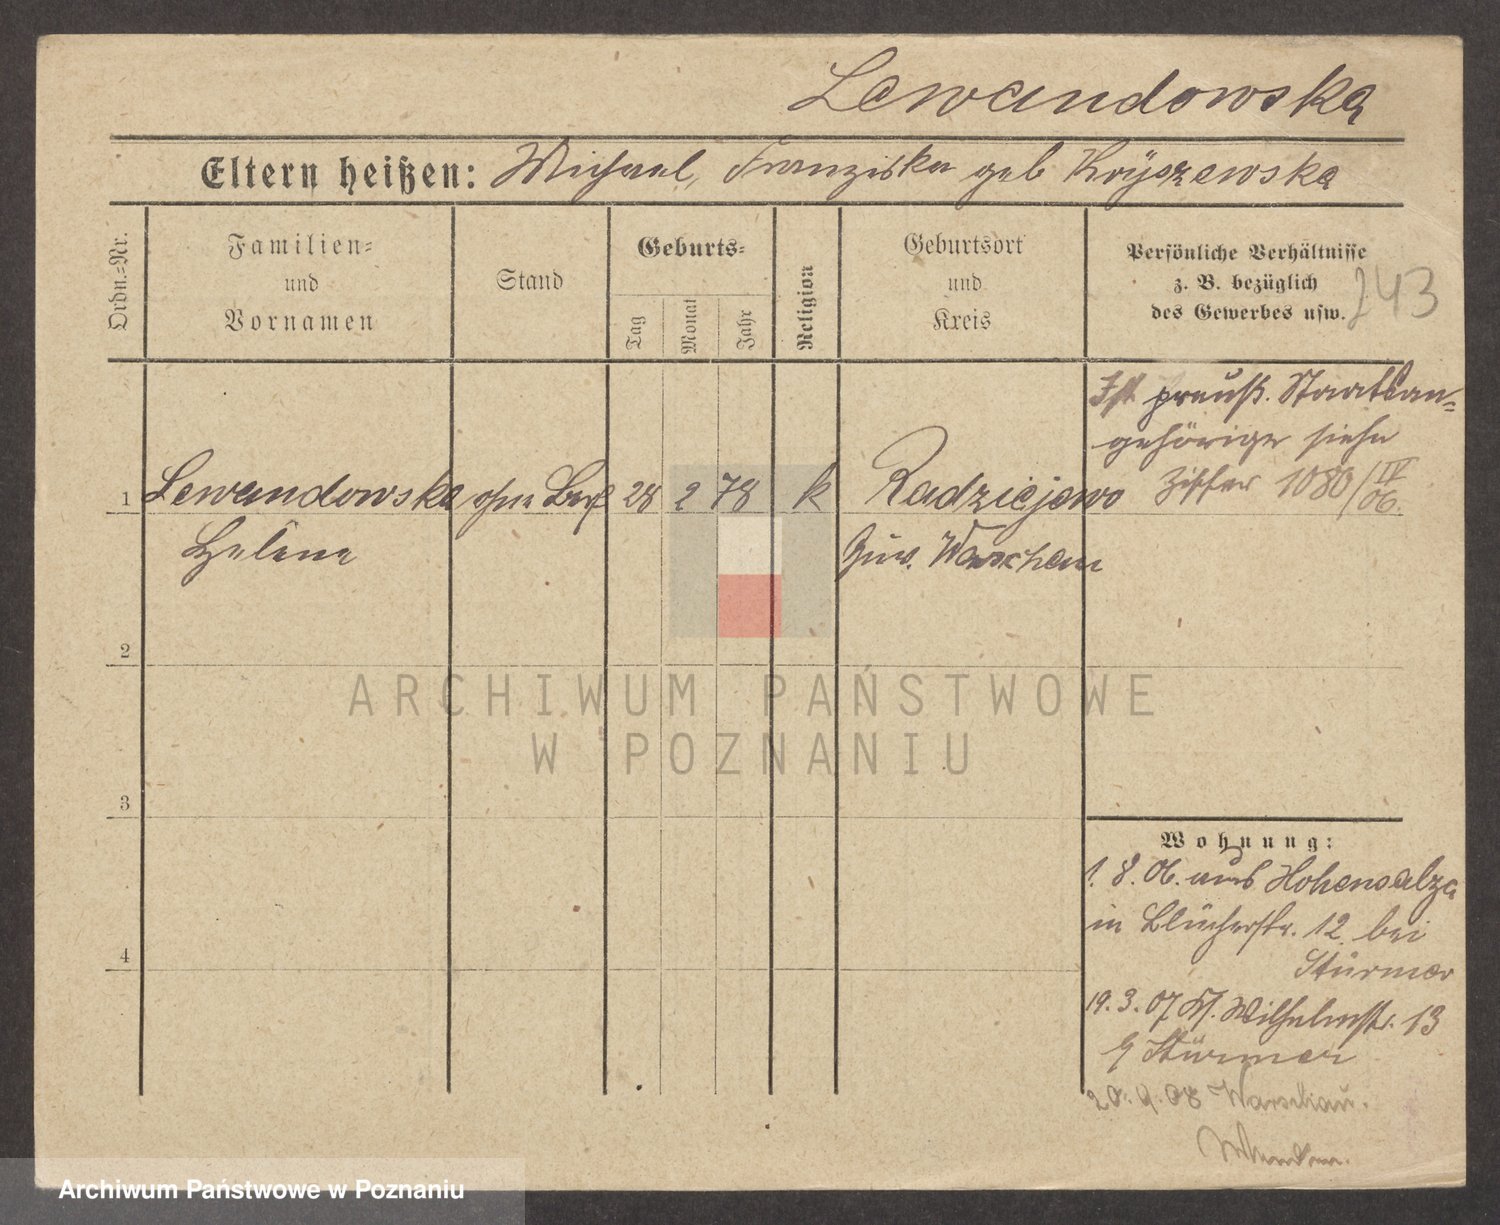 Lewandowska
Eltern heißen: Michael, Franziska geb Kryszewska
Ordn.-Nr.
Familien-
und
Vornamen
Stand
Geburts-
Tag
Monat
Jahr
Religion
Geburtsort
und
Kreis
Persönliche Verhältnisse
z. B. bezüglich
des Gewerbes usw.
243
Ist preuß. Staatsan-
gehörige siehe
Ziffer 1080/IV 06.
1 Lewandowska ohne Beruf 28 2 78 k Radziejewo
Helene Guv. Warschau
2
3
4
Wohnung:
1. 8. 06. aus Hohensalza
in Blücherstr. 12. bei
Stürmer
19. 3. 07 Kl. Wilhelmstr. 13
Stürmer
20. 9. 08 Warschau.
ARCHIWUM PAŃSTWOWE
W POZNANIU
Archiwum Państwowe w Poznaniu